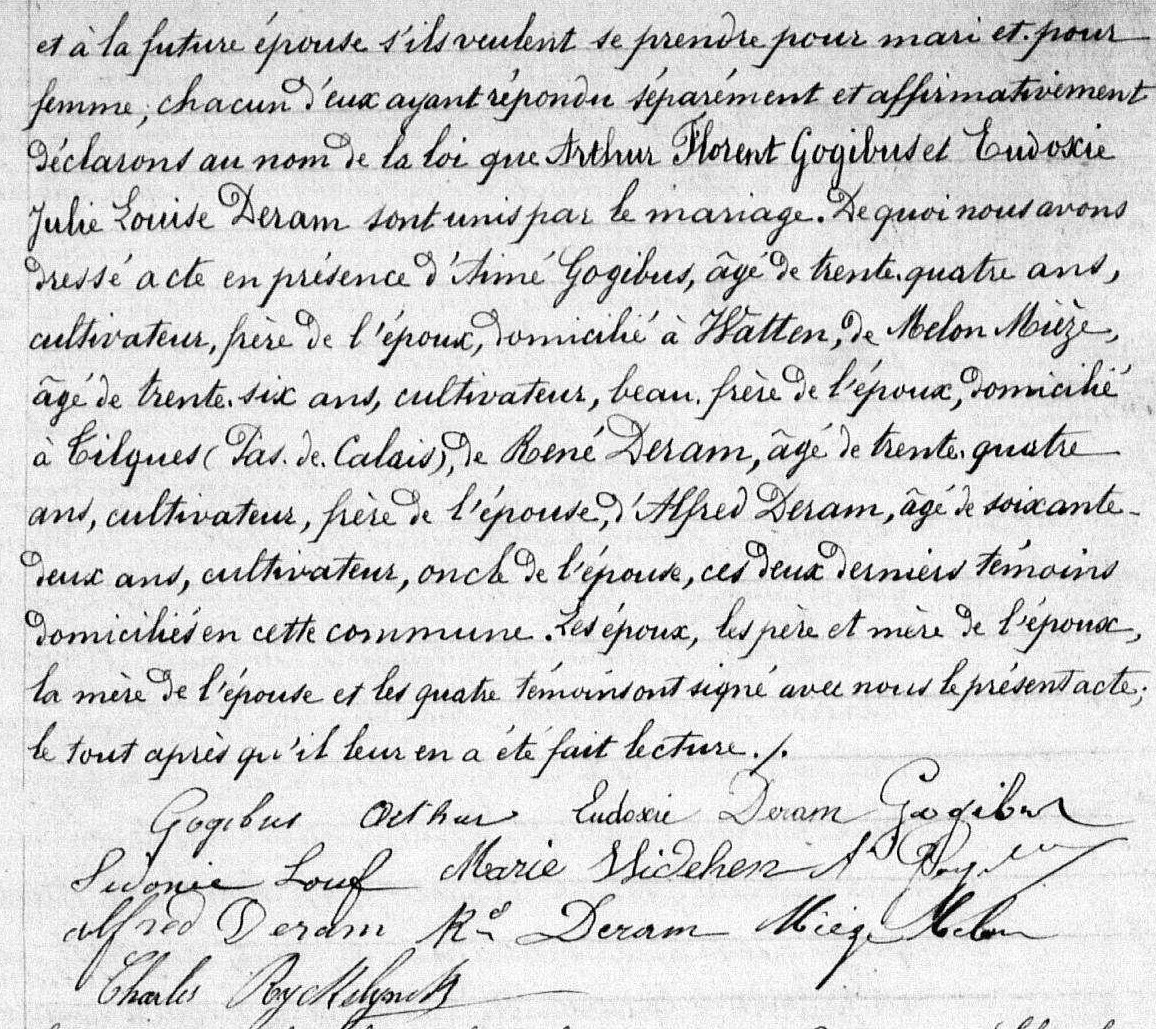 et à la future épouse s'ils veulent se prendre pour mari et pour
femme, chacun d'eux ayant répondu séparément et affirmativement
déclarons au nom de la loi que Arthur Florent Gogibus et Eudoxie
Julie Louise Deram sont unis par le mariage. De quoi nous avons
dressé acte en présence d'Aimé Gogibus, âgé de trente-quatre ans,
cultivateur, frère de l'époux, domicilié à Watten, de Melon Mièze,
âgé de trente-six ans, cultivateur, beau-frère de l'époux, domicilié
à Tilques (Pas-de-Calais), de René Deram, âgé de trente-quatre
ans, cultivateur, frère de l'épouse, d'Alfred Deram, âgé de soixante-
deux ans, cultivateur, oncle de l'épouse, ces deux derniers témoins
domiciliés en cette commune. Les époux, les père et mère de l'époux,
la mère de l'épouse et les quatre témoins ont signé avec nous le présent acte;
le tout après qu'il leur en a été fait lecture./.
Gogibus Arthur Eudoxie Deram Gogibus
Sidonie Louf Marie Widehen
Alfred Deram Rné Deram Mièze Melon
Charles Ryckelynck